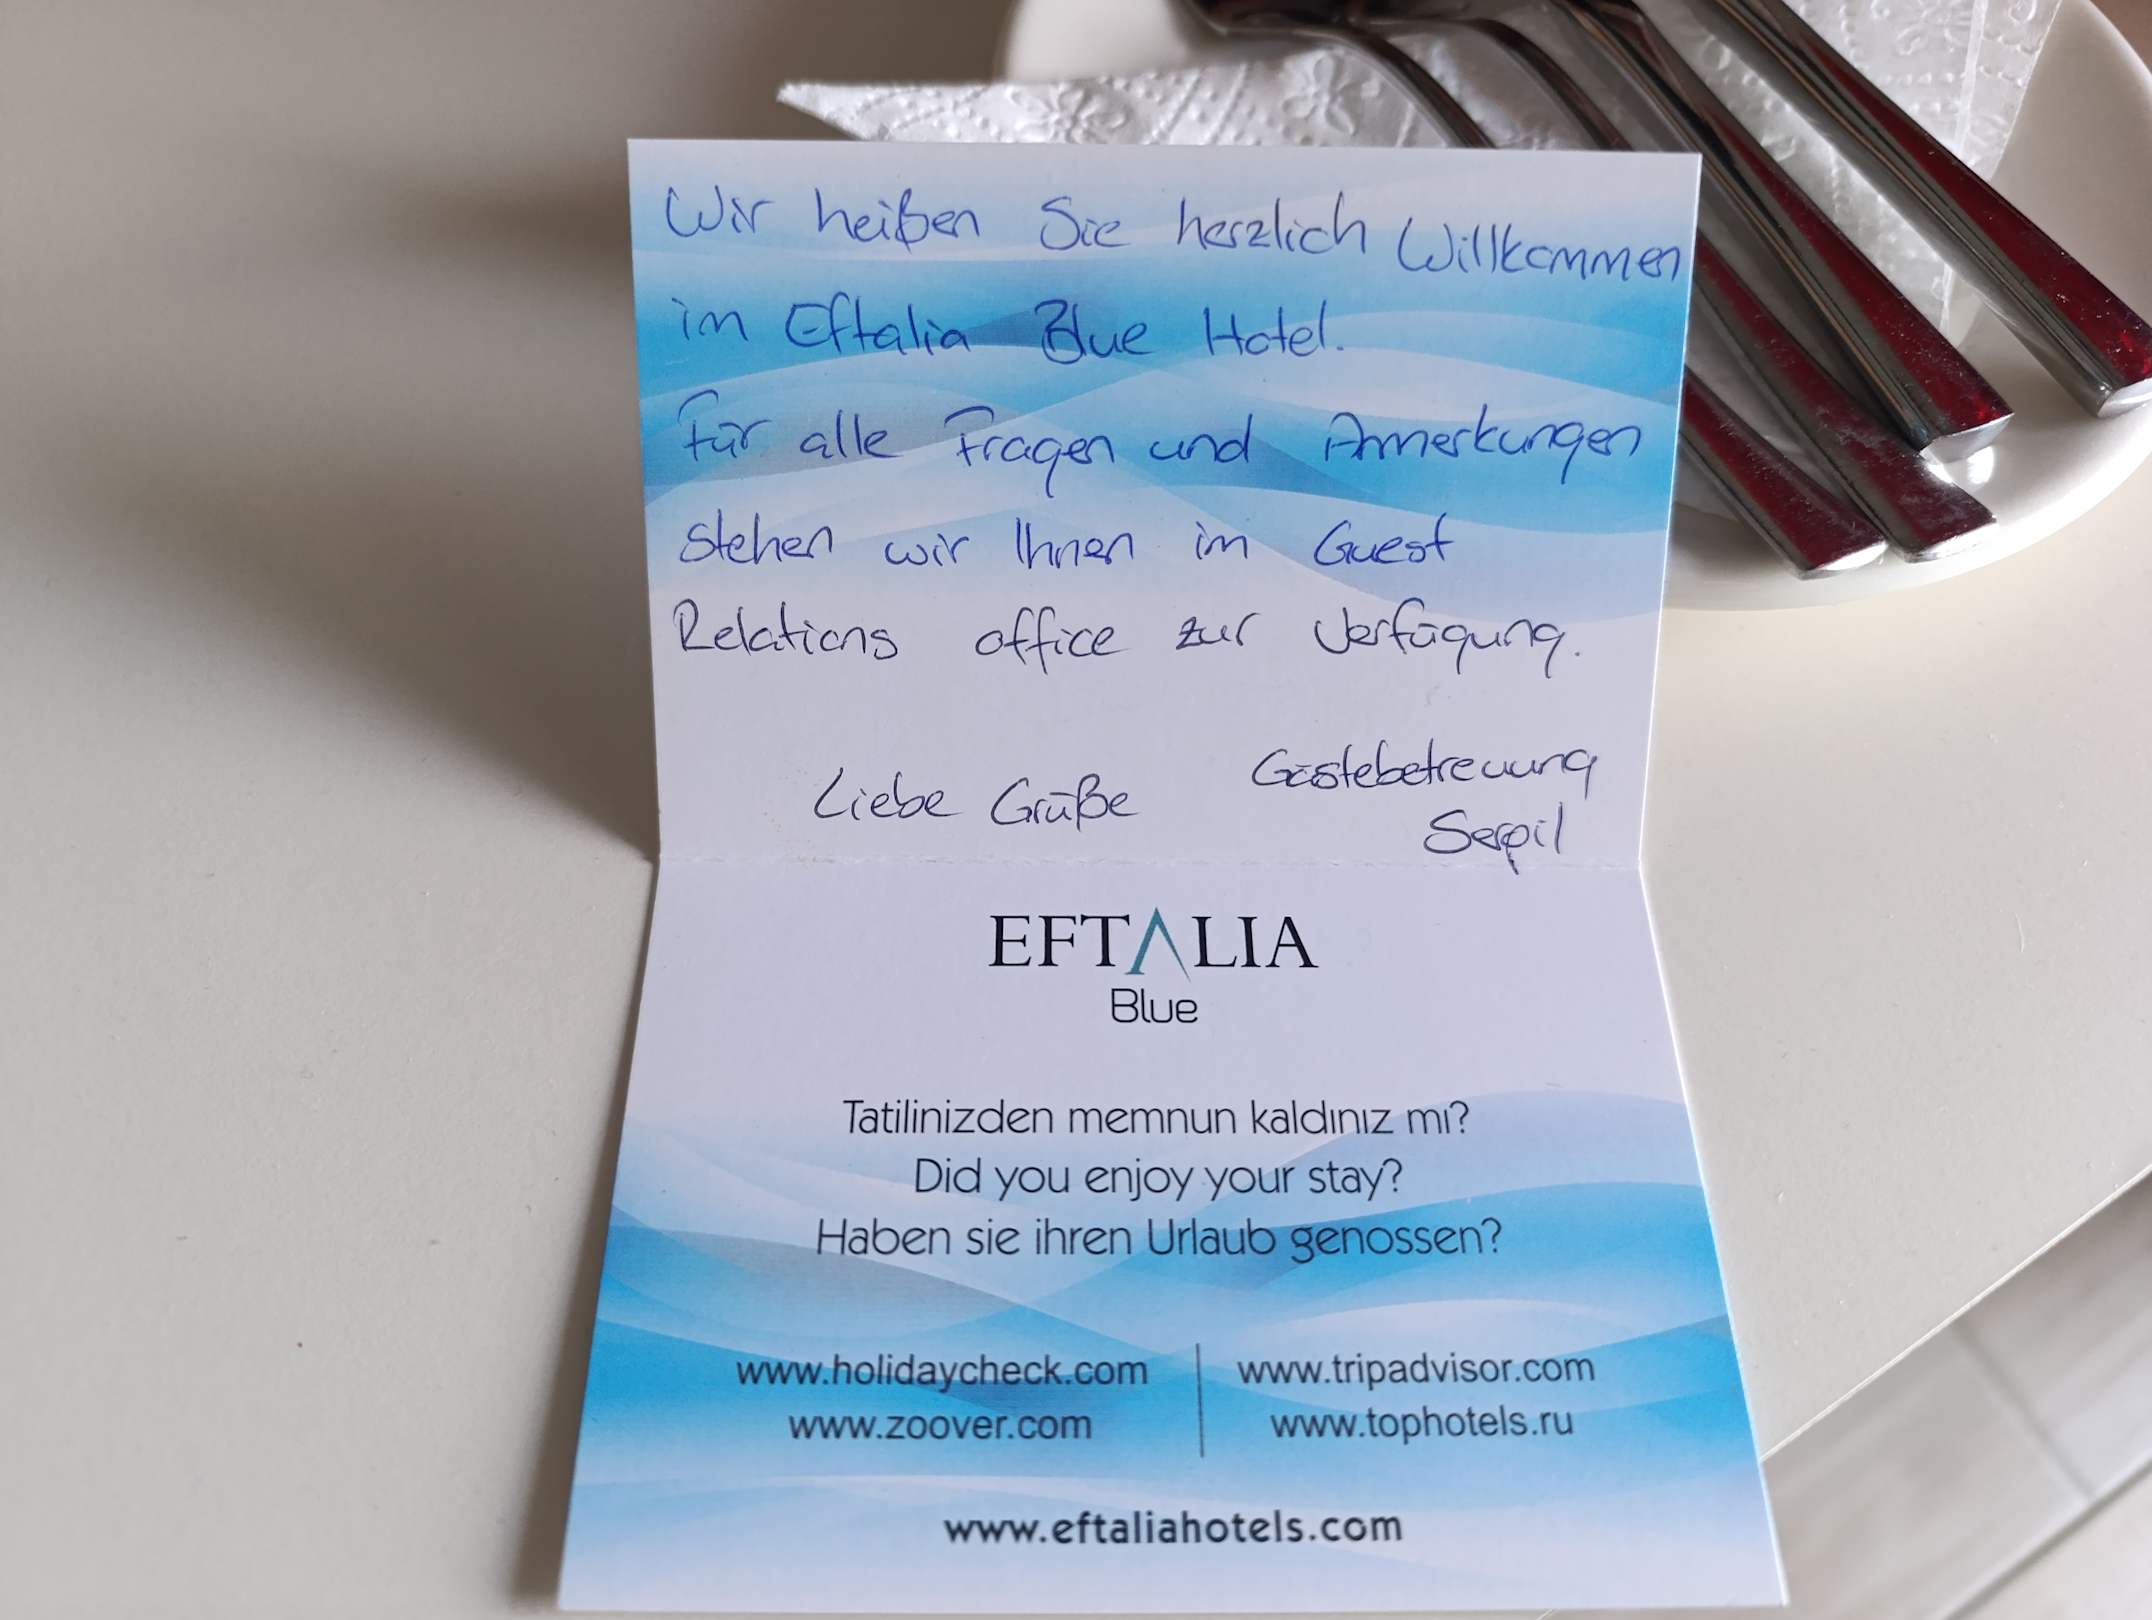 Wir heißen Sie herzlich Willkommen
im Eftalia Blue Hotel.
Für alle Fragen und Anmerkungen
stehen wir Ihnen im Guest
Relations office zur Verfügung.
Liebe Grüße
Gästebetreuung
Serpil
EFTALIA
Blue
Tatilinizden memnun kaldınız mı?
Did you enjoy your stay?
Haben sie ihren Urlaub genossen?
www.holidaycheck.com
www.zoover.com
www.tripadvisor.com
www.tophotels.ru
www.eftaliahotels.com